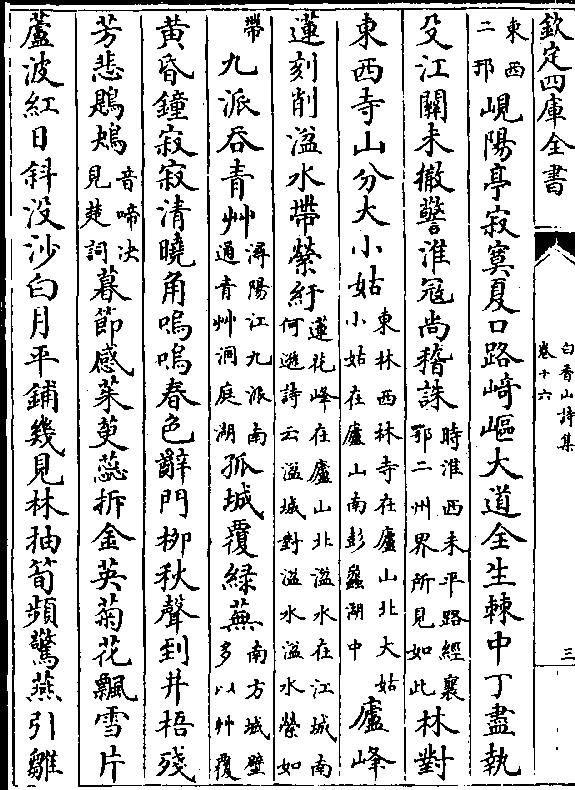 欽定四庫全書
白香山詩集
卷十六
三
東西
二邗
峴陽亭寂寞夏口路崎嶇大道全生棘中丁盡執
殳江關未撤警淮冦尚稽誅
時淮西未平路經襄
鄂二州界所見如此
林對
東西寺山分大小姑
東林西林寺在廬山北大姑
小姑在廬山南彭蠡湖中
廬峰
蓮刻削湓水帶縈紆
蓮花峰在廬山北湓水在江城南
何遜詩云湓城對湓水湓水縈如
帶
九派吞青艸
潯陽江九派南
通青艸洞庭湖
孤城覆緑蕪
南方城壁
多以艸覆
黄昏鐘寂寂清曉角嗚嗚春色辭門栁秋聲到井梧殘
芳悲鶗鴂
音啼决
見楚詞
暮節感茱萸蕊拆金英菊花飄雪片
蘆波紅日斜没沙白月平鋪幾見林抽筍頻驚燕引雛